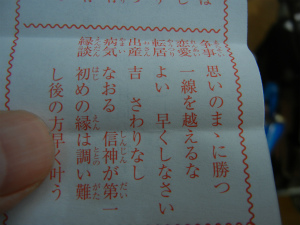 争事 思いのまゝに勝つ
恋愛 一線を越えるな
転居 よい 早くしなさい
出産 吉 さわりなし
病気 なおる 信神が第一
縁談 初めの縁は調い難
し後の方早く叶う
は